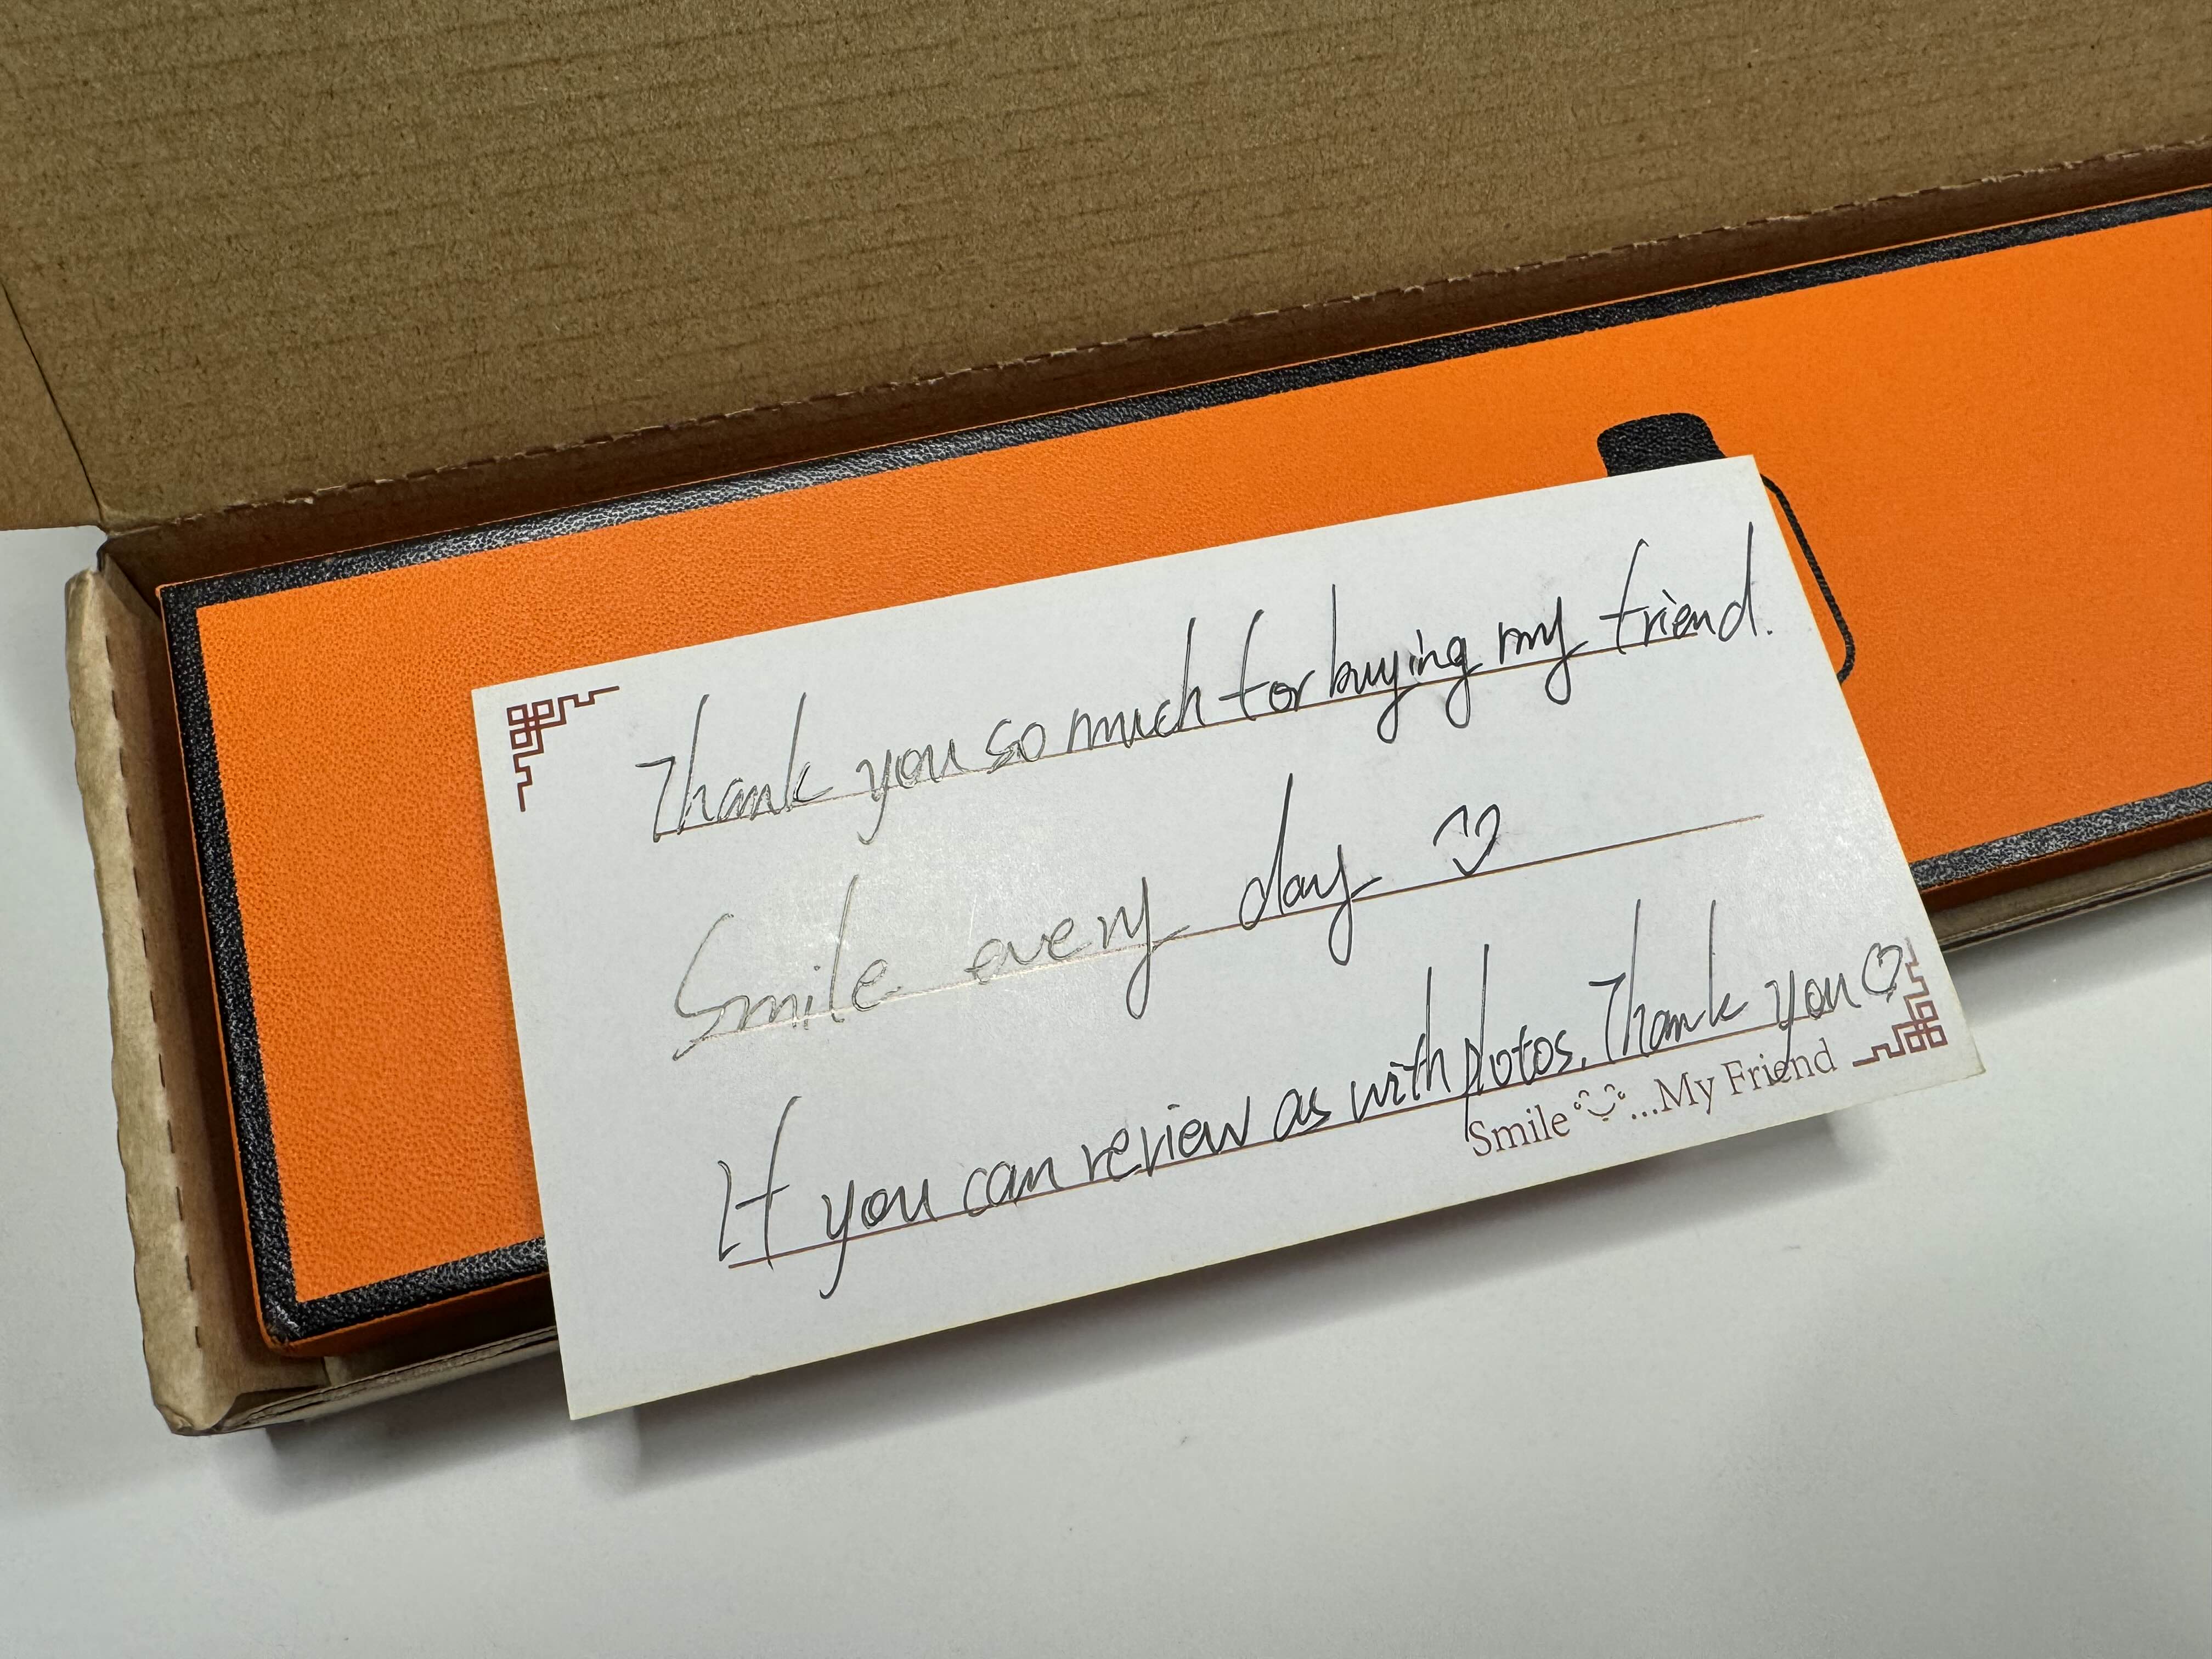 Thank you so much for buying my friend.
Smile every day ♡
If you can review as with photos. Thank you ♡
Smile ... My Friend